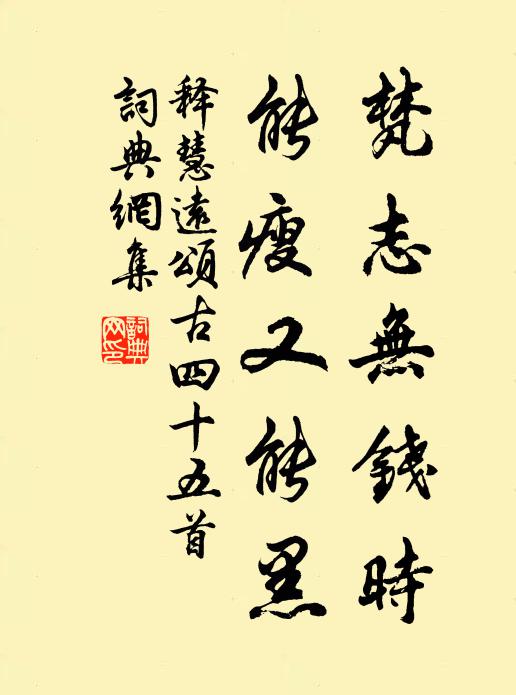 梵志無錢時
能瘦又能黑
释慧遠頌古四十五首
詞典網集
詞典网印